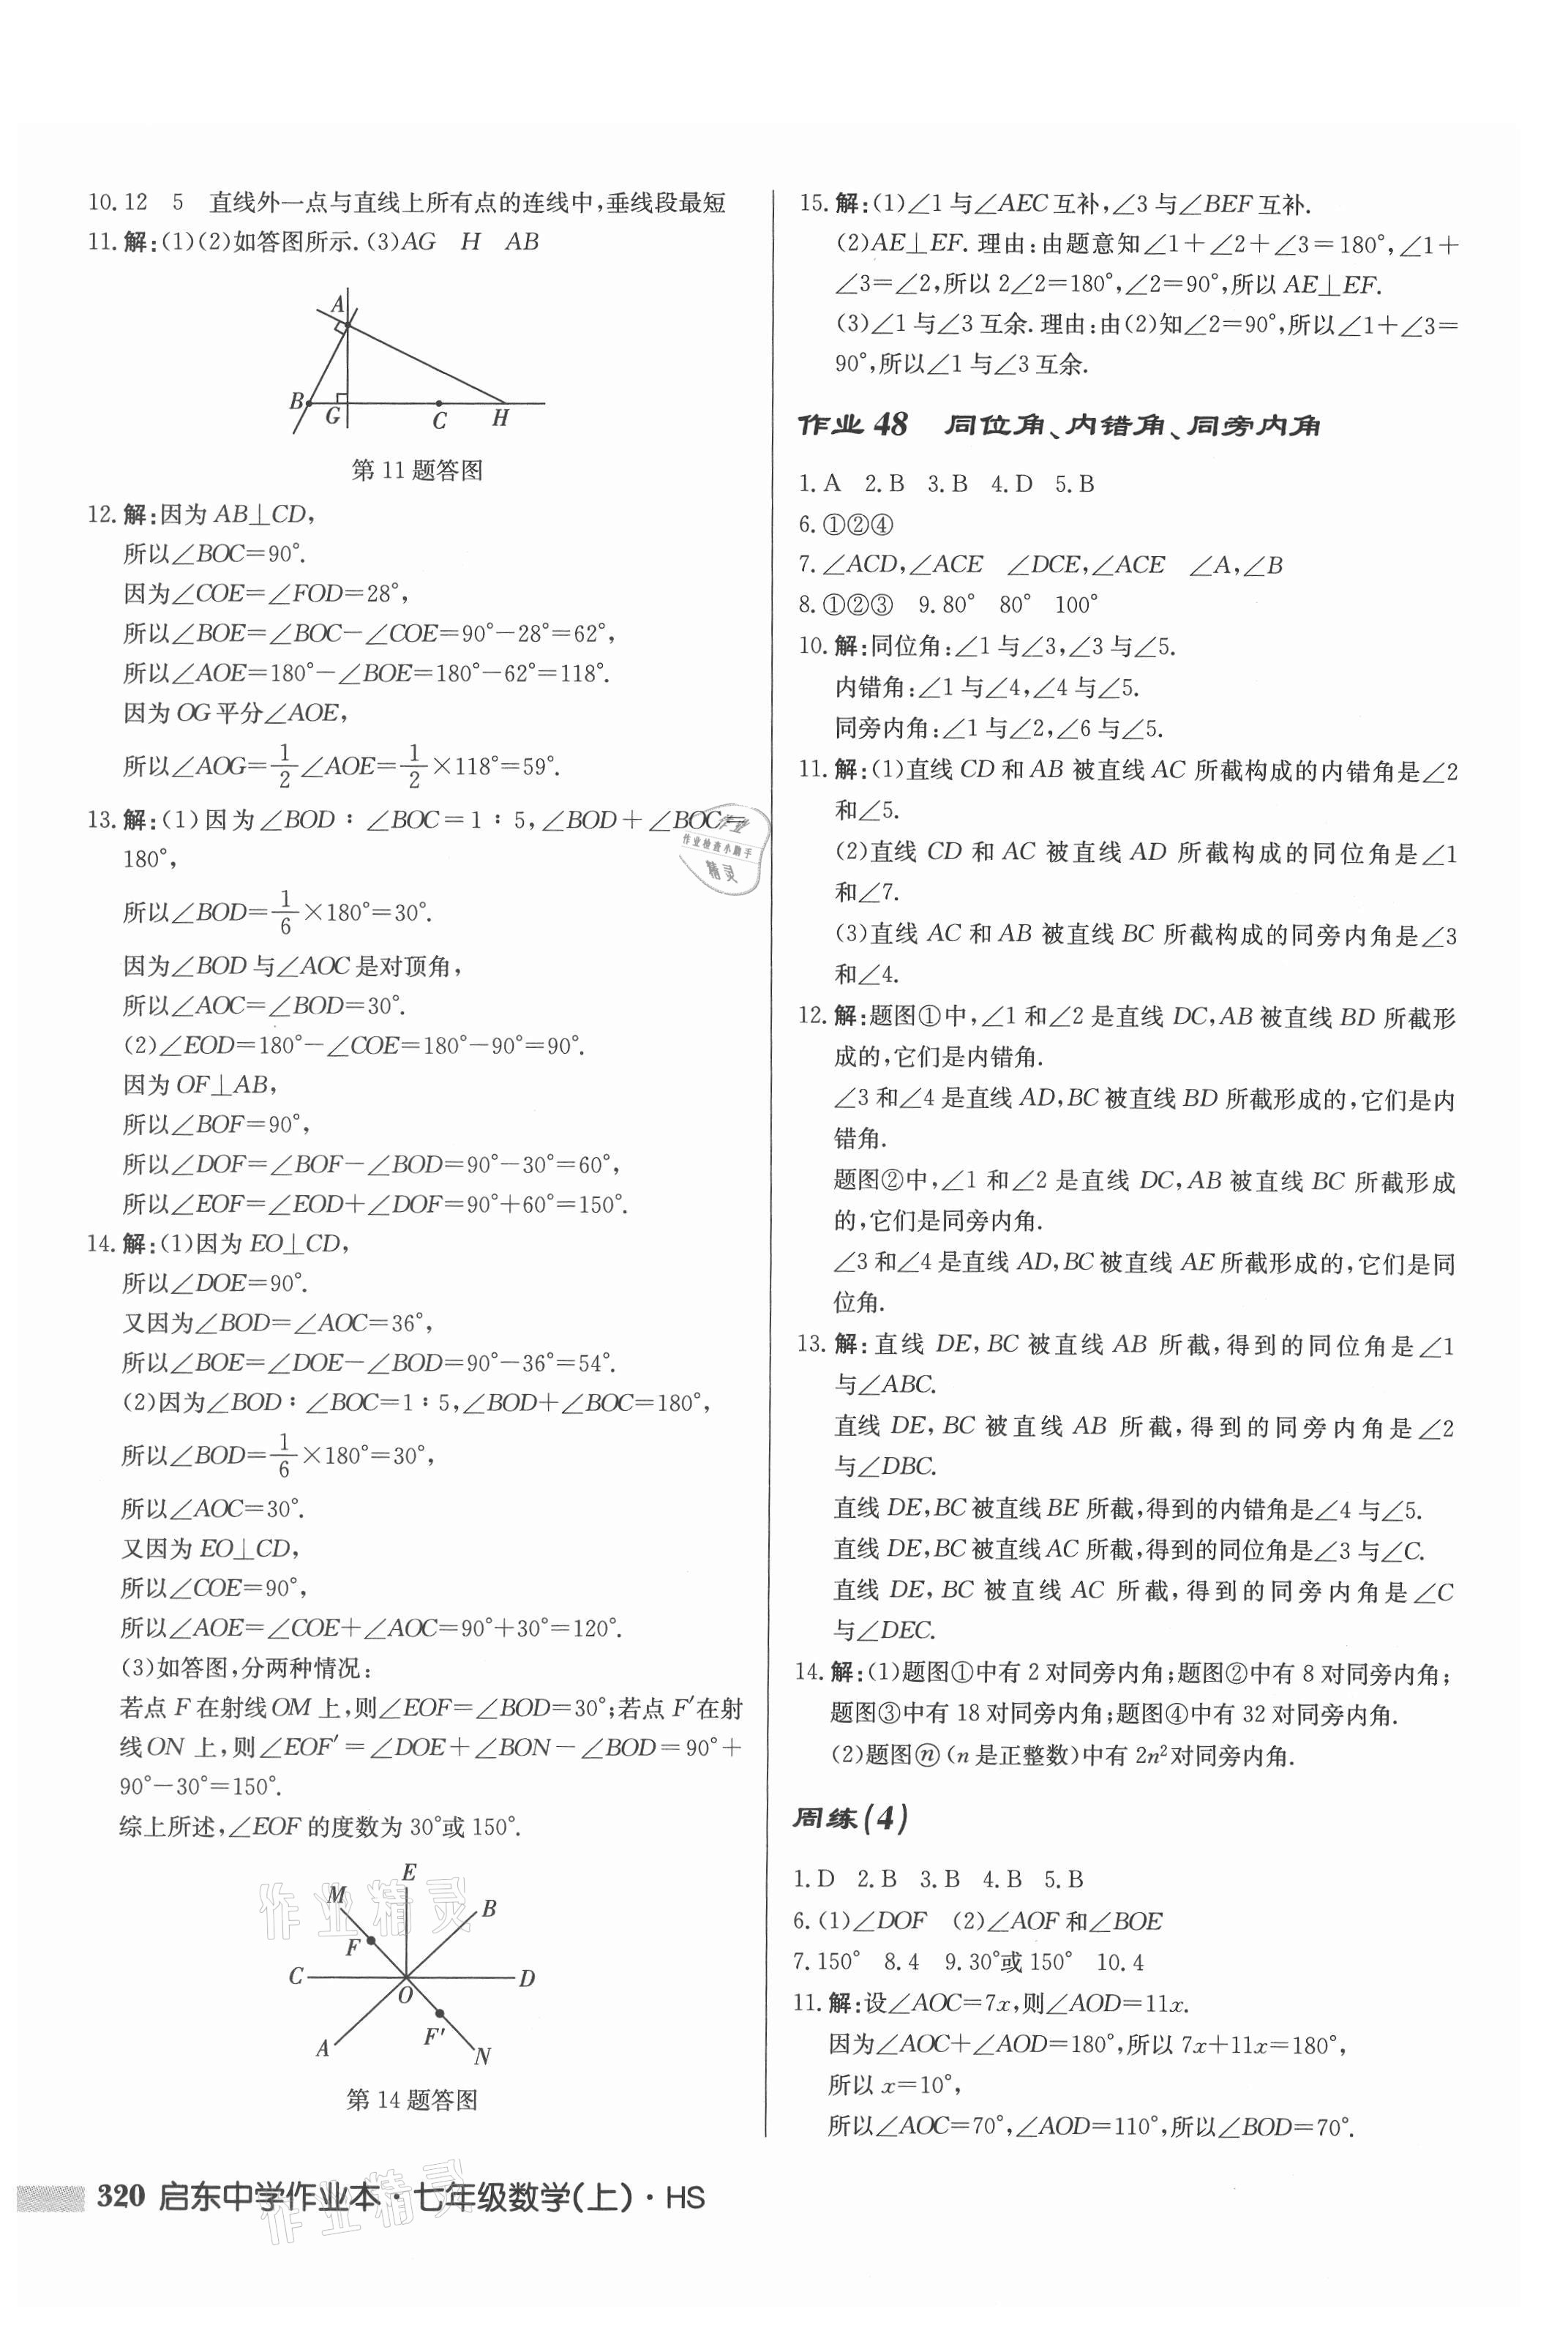 10. 12　5　直线外一点与直线上所有点的连线中,垂线段最短
11. 解:(1)(2)如答图所示. (3)AG　H　AB
A
B
G
C
H
第 11 题答图
12. 解:因为 AB⊥CD,
所以∠BOC=90°.
因为∠COE=∠FOD=28°,
所以∠BOE=∠BOC−∠COE=90°−28°=62°,
所以∠AOE=180°−∠BOE=180°−62°=118°.
因为 OG 平分∠AOE,
所以∠AOG=1/2∠AOE=1/2×118°=59°.
13. 解:(1)因为∠BOD∶∠BOC=1∶5,∠BOD+∠BOC=
180°,
所以∠BOD=1/6×180°=30°.
因为∠BOD 与∠AOC 是对顶角,
所以∠AOC=∠BOD=30°.
(2)∠EOD=180°−∠COE=180°−90°=90°.
因为 OF⊥AB,
所以∠BOF=90°,
所以∠DOF=∠BOF−∠BOD=90°−30°=60°,
所以∠EOF=∠EOD+∠DOF=90°+60°=150°.
14. 解:(1)因为 EO⊥CD,
所以∠DOE=90°.
又因为∠BOD=∠AOC=36°,
所以∠BOE=∠DOE−∠BOD=90°−36°=54°.
(2)因为∠BOD∶∠BOC=1∶5,∠BOD+∠BOC=180°,
所以∠BOD=1/6×180°=30°,
所以∠AOC=30°.
又因为 EO⊥CD,
所以∠COE=90°,
所以∠AOE=∠COE+∠AOC=90°+30°=120°.
(3)如答图,分两种情况:
若点 F 在射线 OM 上,则∠EOF=∠BOD=30°;若点 F′在射
线 ON 上,则∠EOF′=∠DOE+∠BON−∠BOD=90°+
90°−30°=150°.
综上所述,∠EOF 的度数为 30°或 150°.
E
M
B
F
C
D
O
F′
A
N
第 14 题答图
作业
作业检查小助手
精灵
作业精灵
15. 解:(1)∠1 与∠AEC 互补,∠3 与∠BEF 互补.
(2)AE⊥EF. 理由:由题意知∠1+∠2+∠3=180°,∠1+
∠3=∠2,所以 2∠2=180°,∠2=90°,所以 AE⊥EF.
(3)∠1 与∠3 互余. 理由:由(2)知∠2=90°,所以∠1+∠3=
90°,所以∠1 与∠3 互余.
作业 48　同位角、内错角、同旁内角
1. A　2. B　3. B　4. D　5. B
6. ①②④
7. ∠ACD,∠ACE　∠DCE,∠ACE　∠A,∠B
8. ①②③　9. 80°　80°　100°
10. 解:同位角:∠1 与∠3,∠3 与∠5.
内错角:∠1 与∠4,∠4 与∠5.
同旁内角:∠1 与∠2,∠6 与∠5.
11. 解:(1)直线 CD 和 AB 被直线 AC 所截构成的内错角是∠2
和∠5.
(2)直线 CD 和 AC 被直线 AD 所截构成的同位角是∠1
和∠7.
(3)直线 AC 和 AB 被直线 BC 所截构成的同旁内角是∠3
和∠4.
12. 解:题图①中,∠1 和∠2 是直线 DC,AB 被直线 BD 所截形
成的,它们是内错角.
∠3 和∠4 是直线 AD,BC 被直线 BD 所截形成的,它们是内
错角.
题图②中,∠1 和∠2 是直线 DC,AB 被直线 BC 所截形成
的,它们是同旁内角.
∠3 和∠4 是直线 AD,BC 被直线 AE 所截形成的,它们是同
位角.
13. 解:直线 DE,BC 被直线 AB 所截,得到的同位角是∠1
与∠ABC.
直线 DE,BC 被直线 AB 所截,得到的同旁内角是∠2
与∠DBC.
直线 DE,BC 被直线 BE 所截,得到的内错角是∠4 与∠5.
直线 DE,BC 被直线 AC 所截,得到的同位角是∠3 与∠C.
直线 DE,BC 被直线 AC 所截,得到的同旁内角是∠C
与∠DEC.
14. 解:(1)题图①中有 2 对同旁内角;题图②中有 8 对同旁内角;
题图③中有 18 对同旁内角;题图④中有 32 对同旁内角.
(2)题图ⓝ(n 是正整数)中有 2n²对同旁内角.
周练(4)
1. D　2. B　3. B　4. B　5. B
6. (1)∠DOF　(2)∠AOF 和∠BOE
7. 150°　8. 4　9. 30°或 150°　10. 4
11. 解:设∠AOC=7x,则∠AOD=11x.
因为∠AOC+∠AOD=180°,所以 7x+11x=180°,
所以 x=10°,
所以∠AOC=70°,∠AOD=110°,所以∠BOD=70°.
320 启东中学作业本·七年级数学(上)·HS
作业精灵